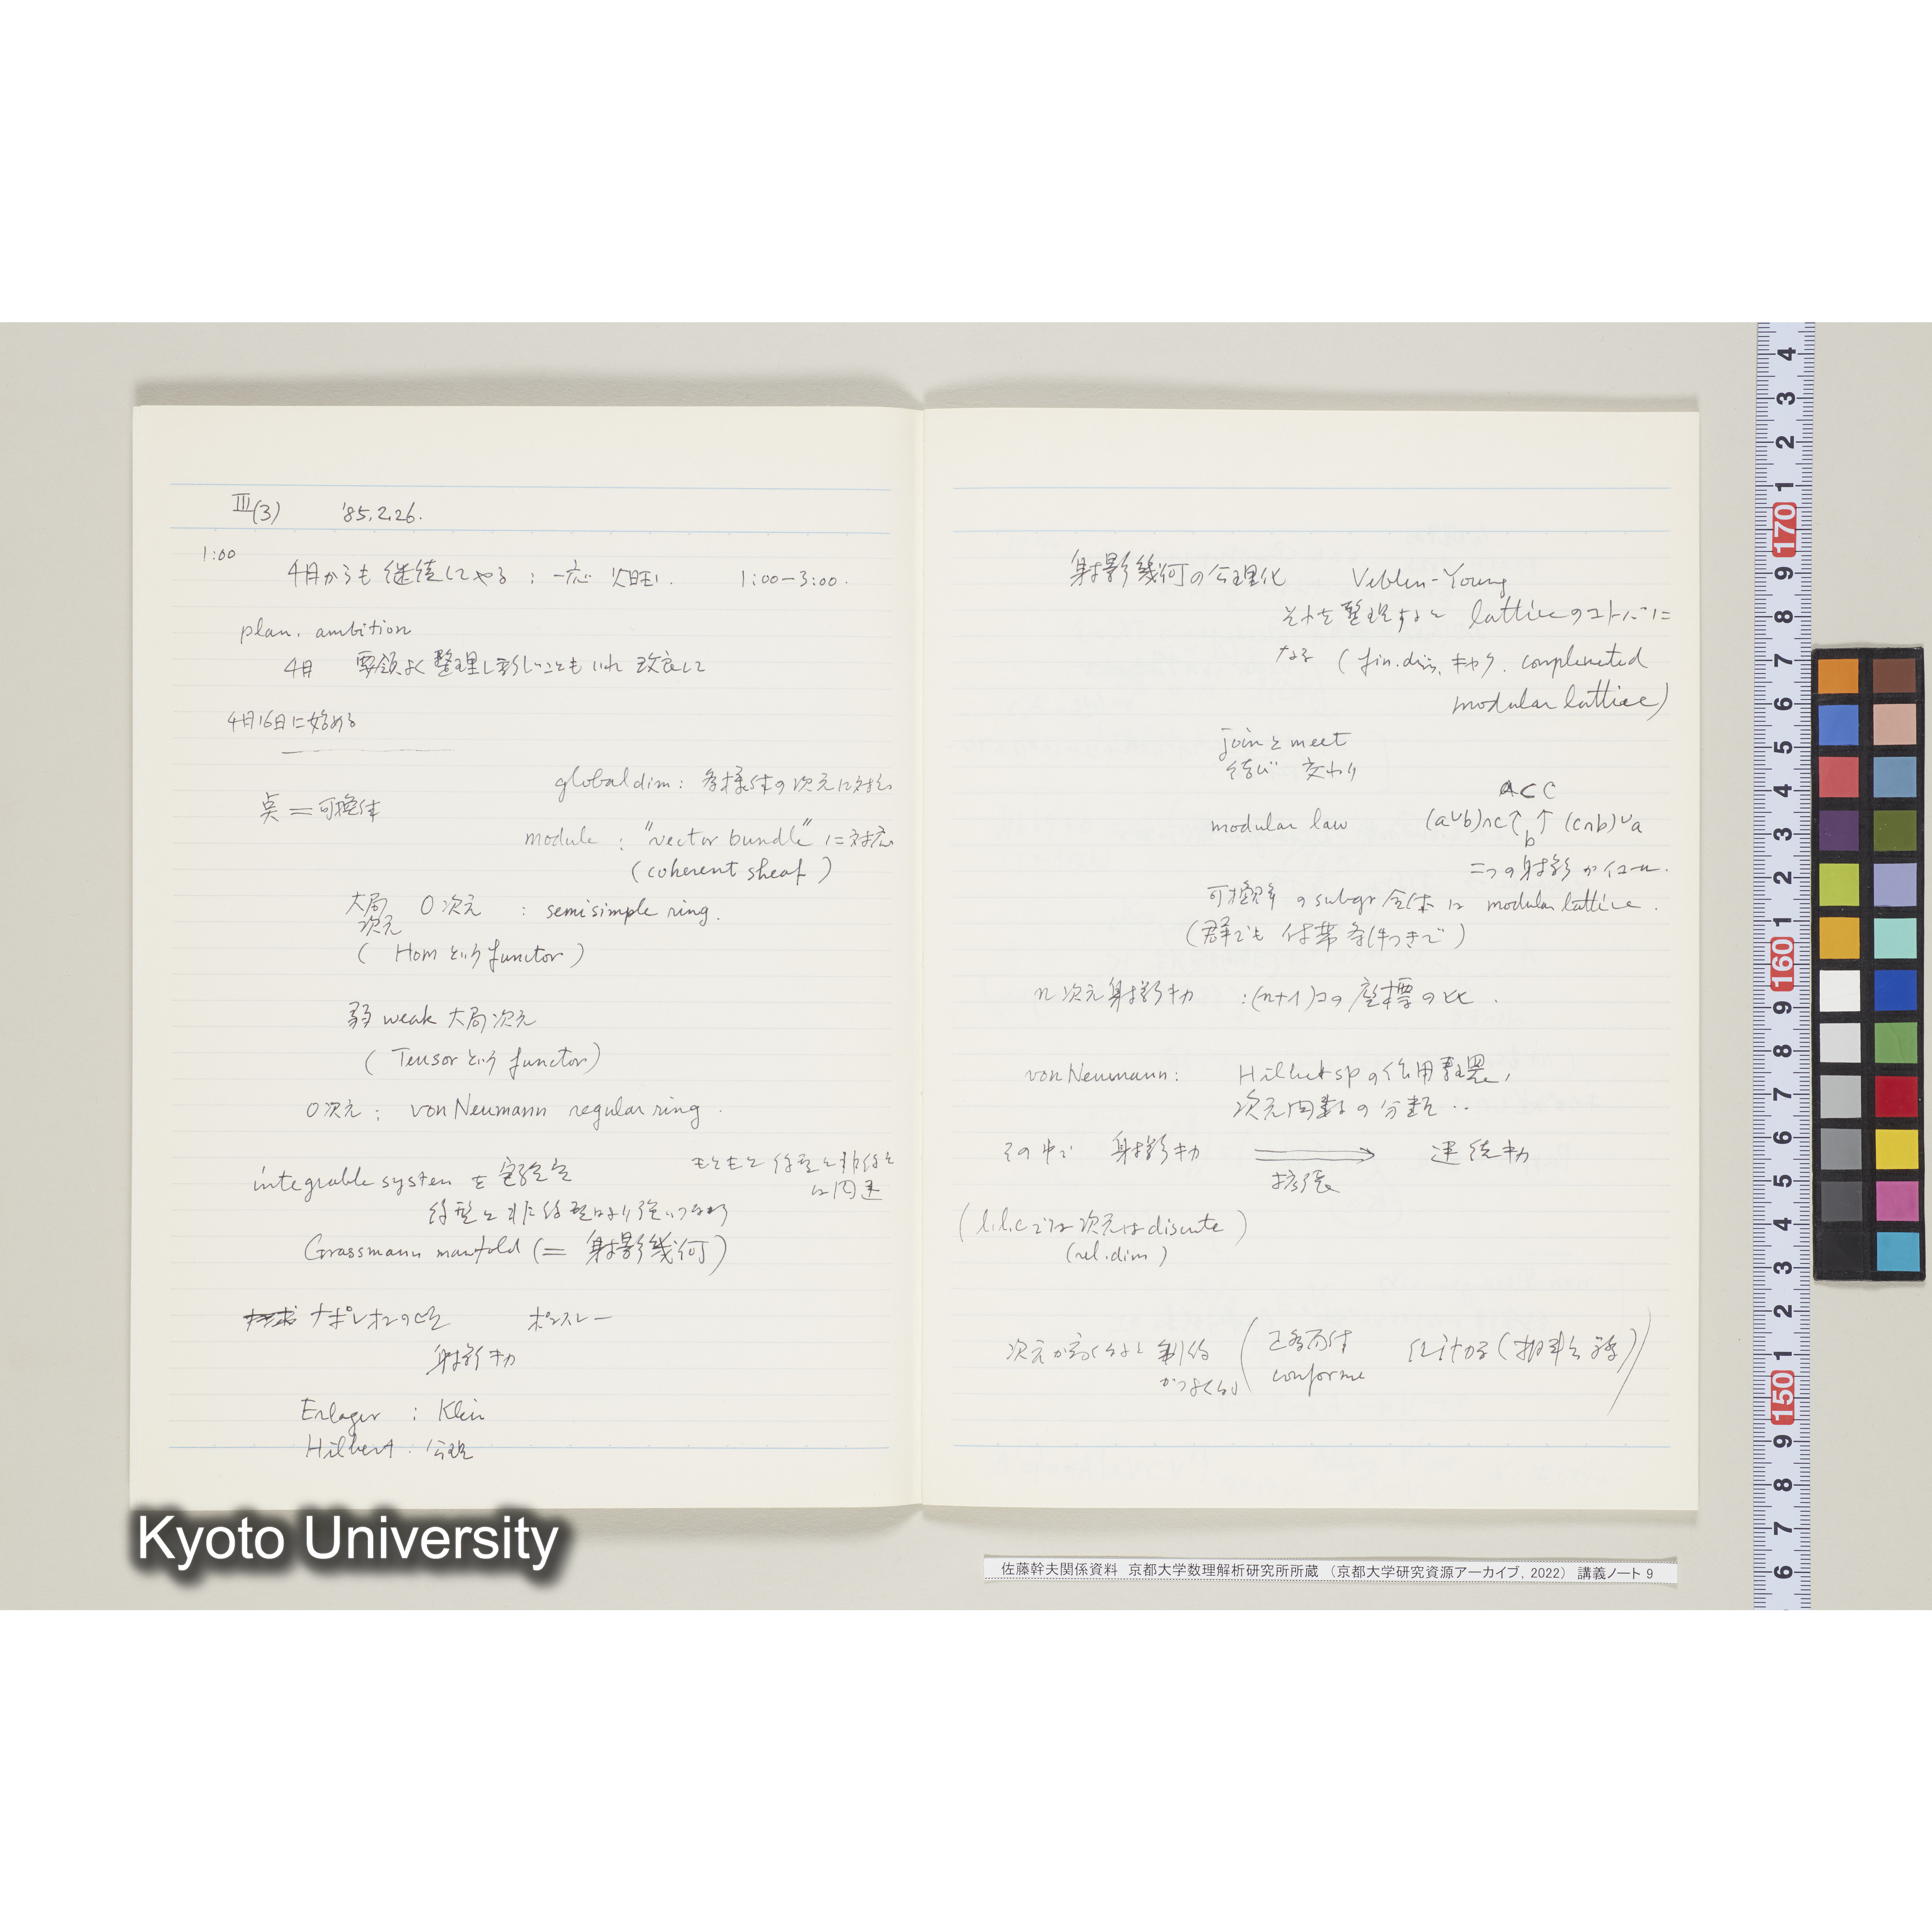 III(3) '85.2.26.
1:00
4月からも継続してやる : 一応 火曜. 1:00-3:00.
plan. ambition
4月 要領よく整理し新しいこともいれ 改良して
4月16日に始める
global dim: 多様体の次元に対応
点 = 可換体
module : "vector bundle" に対応
(coherent sheaf)
大局次元 0次元 : semisimple ring.
(Hom という functor)
弱 weak 大局次元
(Tensor という functor)
0次元 : von Neumann regular ring.
integrable system を
もともと 線型と非線型は
線型と非線型はより強いつながり
Grassmann manifold (= 射影幾何)
ナポレオンの ポンスレー
射影キカ
Erlager : Klein
Hilbert : 公理
射影幾何の公理化 Veblen-Young
それを整理すると lattice のコトバに
なる (fin.dim. キカク. complemented
modular lattice)
join と meet
結び 交わり
a⊂c
modular law (a∪b)∩c↑ ↑ (c∩b)∪a
b
二つの射影がイコール.
可換群 の subgr 全体は modular lattice.
(群でも 付帯条件つきで)
n次元射影キカ : (n+1)コの座標の比.
von Neumann: Hilbert sp の作用素環,
次元函数の分類..
その中で 射影キカ ⟹ 連続キカ
拡張
(l.l.c では次元は discrete)
(rel.dim)
次元が高くなると 制約
がつよくなる
conforme
Kyoto University
佐藤幹夫関係資料 京都大学数理解析研究所所蔵 (京都大学研究資源アーカイブ, 2022) 講義ノート 9
4
3
2
1
170
9
8
7
6
5
4
3
2
1
160
9
8
7
6
5
4
3
2
1
150
9
8
7
6